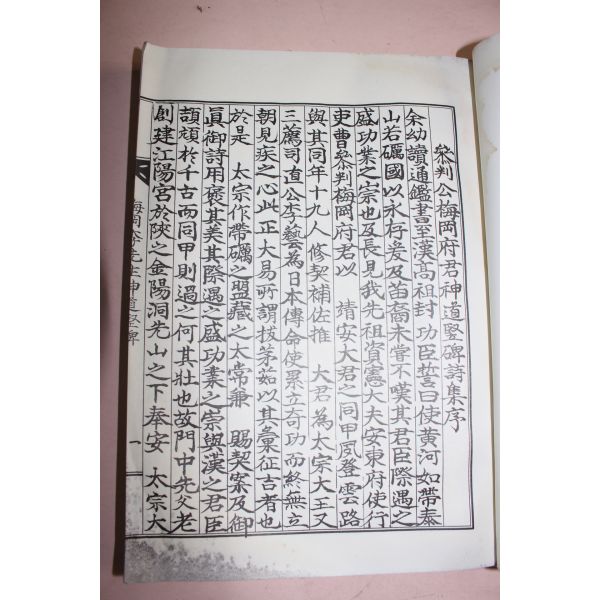 參判公梅岡府君神道竪碑詩集序
余幼讀通鑑書至漢高祖封功臣誓曰使黃河如帶泰
山若礪國以永存爰及苗裔未嘗不嘆其君臣際遇之
盛功業之崇也及長見我先祖資憲大夫安東府使行
吏曹參判梅岡府君以 靖安大君之同甲夙登雲路
與其同年十九人修契補佐推 大君為太宗大王又
三薦司直公李藝為日本傳命使累立奇功而終無立
朝見疾之心此正大易所謂拔茅茹以其彙征吉者也
於是 太宗作帶礪之盟藏之太常兼 賜契案及御
眞御詩用褒其美其際遇之盛功業之崇與漢之君臣
頡頏於千古而同甲則過之何其壯也故門中先父老
創建江陽宮於陜之金陽洞先山之下奉安 太宗大
梅岡李先生神道竪碑
一